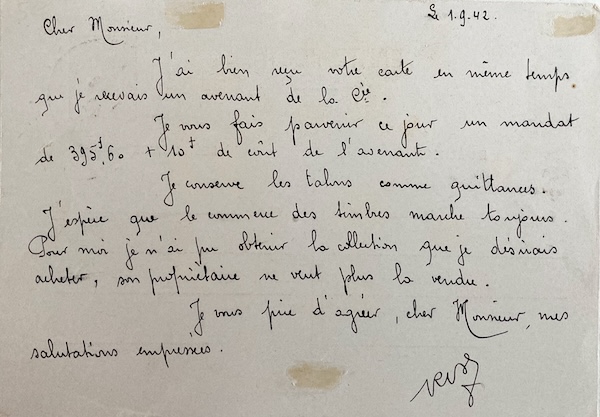 Le 1.9.42.
Cher Monsieur,
J'ai bien reçu votre carte en même temps
que je recevais un avenant de la Cie.
Je vous fais parvenir ce jour un mandat
de 395f,60 + 10f de coût de l'avenant.
Je conserve les talons comme quittances.
J'espère que le commerce des timbres marche toujours.
Pour moi je n'ai pu obtenir la collection que je désirais
acheter, son propriétaire ne veut plus la vendre.
Je vous prie d'agréer, cher Monsieur, mes
salutations empressées.